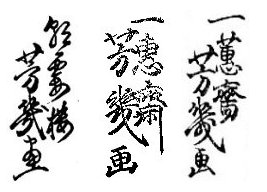 一蕙齋
芳幾画
一惠齋
芳幾画
朝霞楼
芳幾画